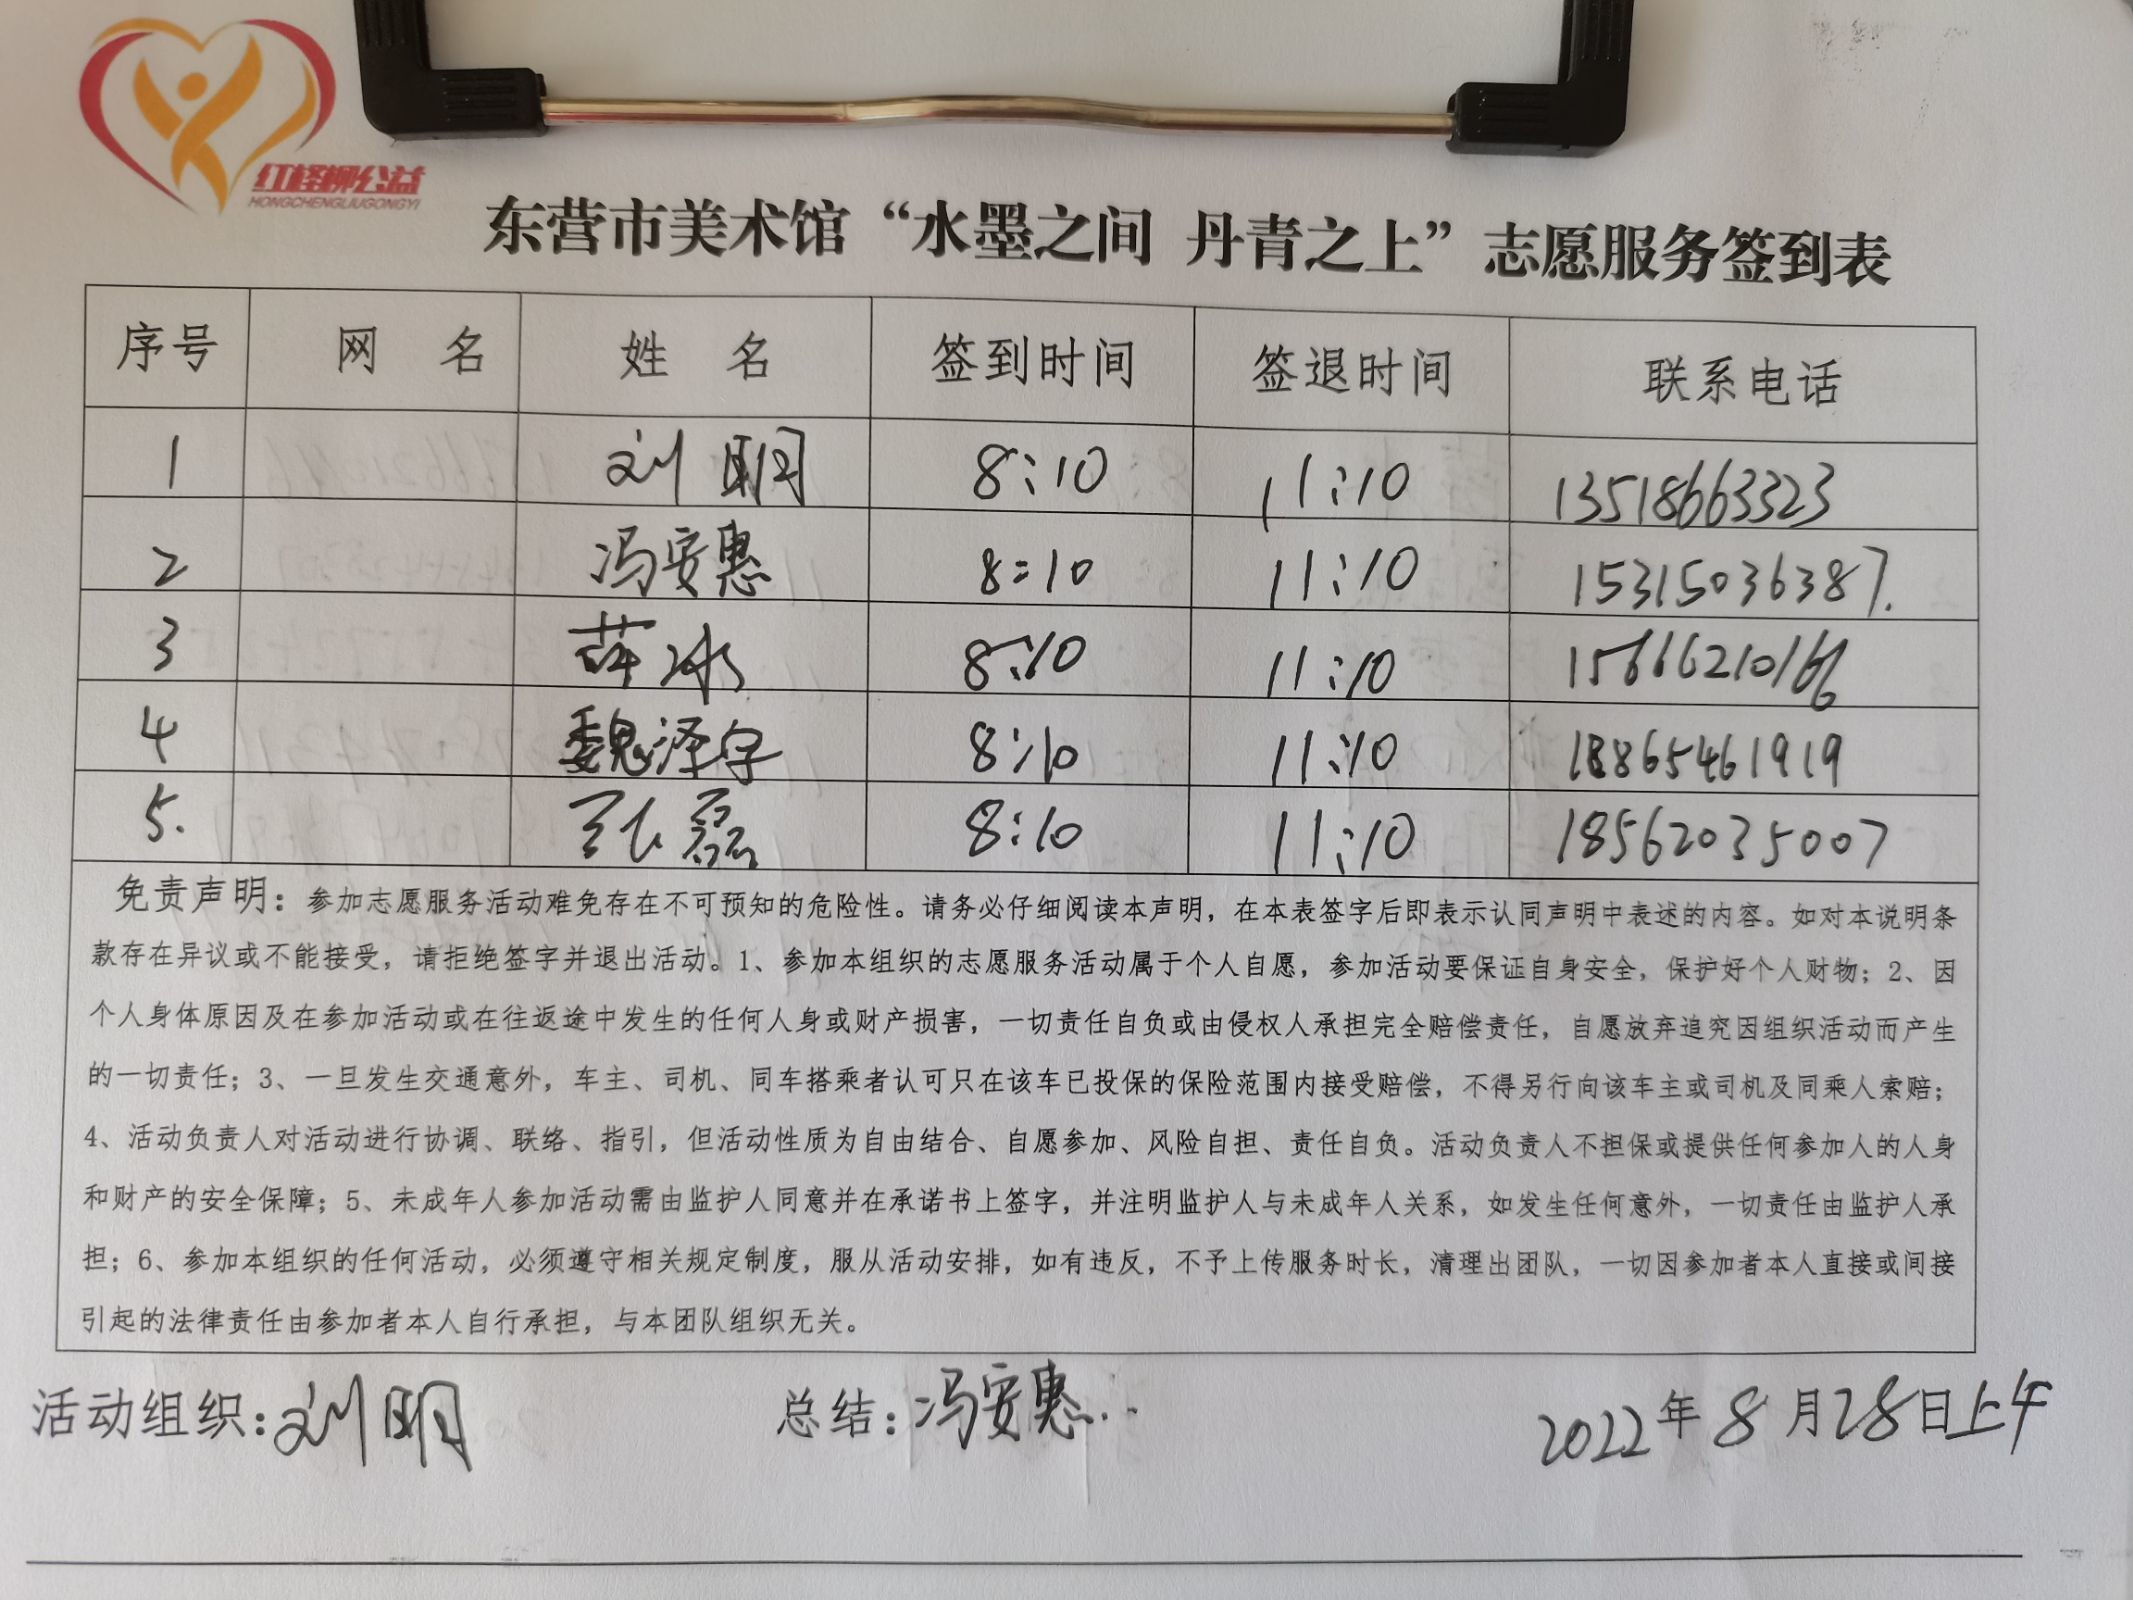 红柽柳公益
HONGCHENGLIUGONGYI
东营市美术馆“水墨之间 丹青之上”志愿服务签到表
序号 网 名 姓 名 签到时间 签退时间 联系电话
1 刘明 8:10 11:10 13518663323
2 冯安惠 8:10 11:10 15315036387.
3 薛冰 8:10 11:10 15666210166
4 魏泽宇 8:10 11:10 18865461919
5. 张磊 8:10 11:10 18562035007
免责声明：参加志愿服务活动难免存在不可预知的危险性。请务必仔细阅读本声明，在本表签字后即表示认同声明中表述的内容。如对本说明条
款存在异议或不能接受，请拒绝签字并退出活动。1、参加本组织的志愿服务活动属于个人自愿，参加活动要保证自身安全，保护好个人财物；2、因
个人身体原因及在参加活动或在往返途中发生的任何人身或财产损害，一切责任自负或由侵权人承担完全赔偿责任，自愿放弃追究因组织活动而产生
的一切责任；3、一旦发生交通意外，车主、司机、同车搭乘者认可只在该车已投保的保险范围内接受赔偿，不得另行向该车主或司机及同乘人索赔；
4、活动负责人对活动进行协调、联络、指引，但活动性质为自由结合、自愿参加、风险自担、责任自负。活动负责人不担保或提供任何参加人的人身
和财产的安全保障；5、未成年人参加活动需由监护人同意并在承诺书上签字，并注明监护人与未成年人关系，如发生任何意外，一切责任由监护人承
担；6、参加本组织的任何活动，必须遵守相关规定制度，服从活动安排，如有违反，不予上传服务时长，清理出团队，一切因参加者本人直接或间接
引起的法律责任由参加者本人自行承担，与本团队组织无关。
活动组织：刘明 总结：冯安惠 2022年8月28日上午